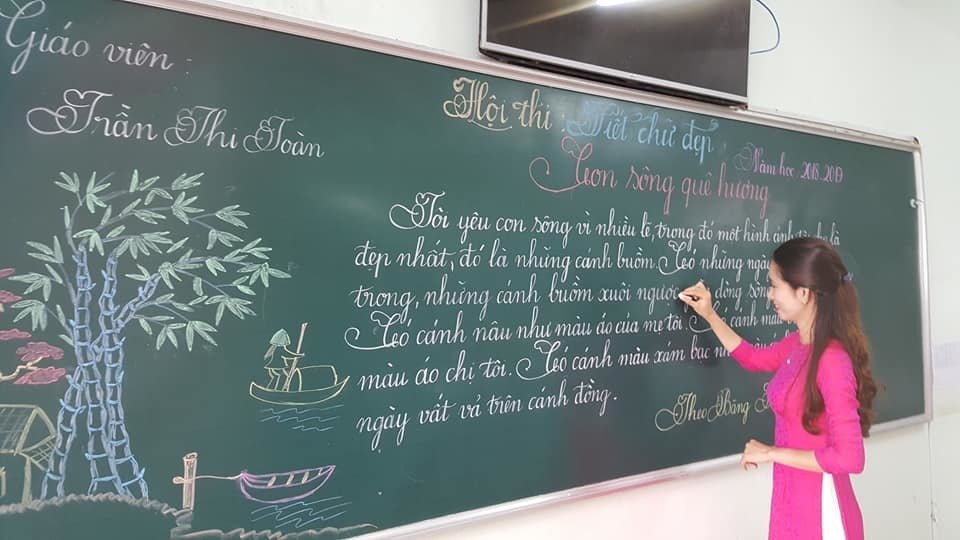 Giáo viên :
Trần Thi Toàn
Hội thi : Viết chữ đẹp
Năm học : 2018.2019
Con sông quê hương
Tôi yêu con sông vì nhiều lẽ, trong đó một hình ảnh là
đẹp nhất, đó là những cánh buồm. Có những ngày
trong, những cánh buồm xuôi ngược dòng sông
Có cánh nâu như màu áo của mẹ tôi. Có cánh màu
màu áo chị tôi. Có cánh màu xám bạc
ngày vất vả trên cánh đồng.
Theo Băng